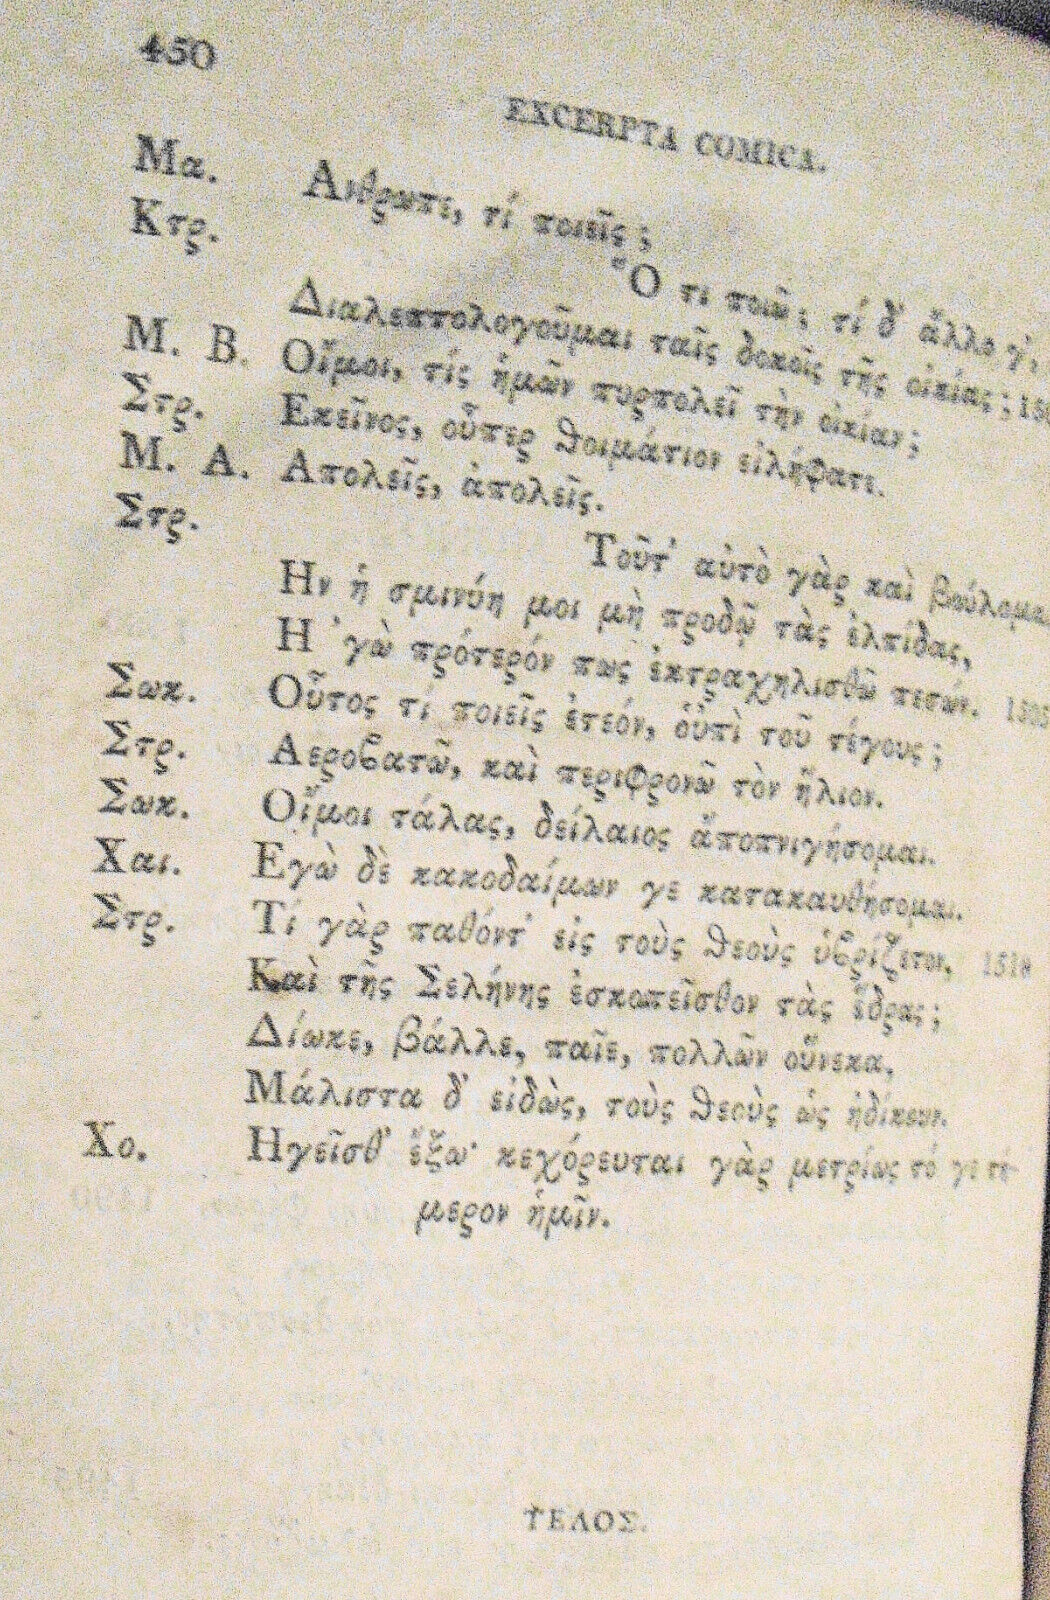 450
EXCERPTA COMICA.
Μα. Ανθρωπε, τί ποιεῖς;
Κτρ. Ὅ τι ποιῶ; τί δ' ἄλλο γ',
Διαλεπτολογοῦμαι ταῖς δοκοῖς τῆς οἰκίας;
Μ. Β. Οἴμοι, τίς ἡμῶν πυρπολεῖ τὴν οἰκίαν;
Στρ. Εκεῖνος, οὗπερ θοιμάτιον εἰλήφατε.
Μ. Α. Απολεῖς, ἀπολεῖς.
Στρ. Τοῦτ' αὐτὸ γὰρ καὶ
Ην ἡ σμινύη μοι μὴ προδῷ τὰς ἐλπίδας,
Η 'γὼ πρότερόν πως ἐκτραχηλισθῶ πεσών. 1505
Σωκ. Οὗτος τί ποιεῖς ἐτεόν, οὑπὶ τοῦ τέγους;
Στρ. Αεροβατῶ, καὶ περιφρονῶ τὸν ἥλιον.
Σωκ. Οἴμοι τάλας, δείλαιος ἀποπνιγήσομαι.
Χαι. Εγὼ δὲ κακοδαίμων γε κατακαυθήσομαι.
Στρ. Τί γὰρ παθόντ' εἰς τοὺς θεοὺς ὑβρίζετον, 1510
Καὶ τῆς Σελήνης ἐσκοπεῖσθον τὰς ἕδρας;
Δίωκε, βάλλε, παῖε, πολλῶν οὕνεκα,
Μάλιστα δ' εἰδὼς, τοὺς θεοὺς ὡς ἠδίκουν.
Χο. Ηγεῖσθ' ἔξω· κεχόρευται γὰρ μετρίως τό γε τή-
μερον ἡμῖν.
ΤΕΛΟΣ.